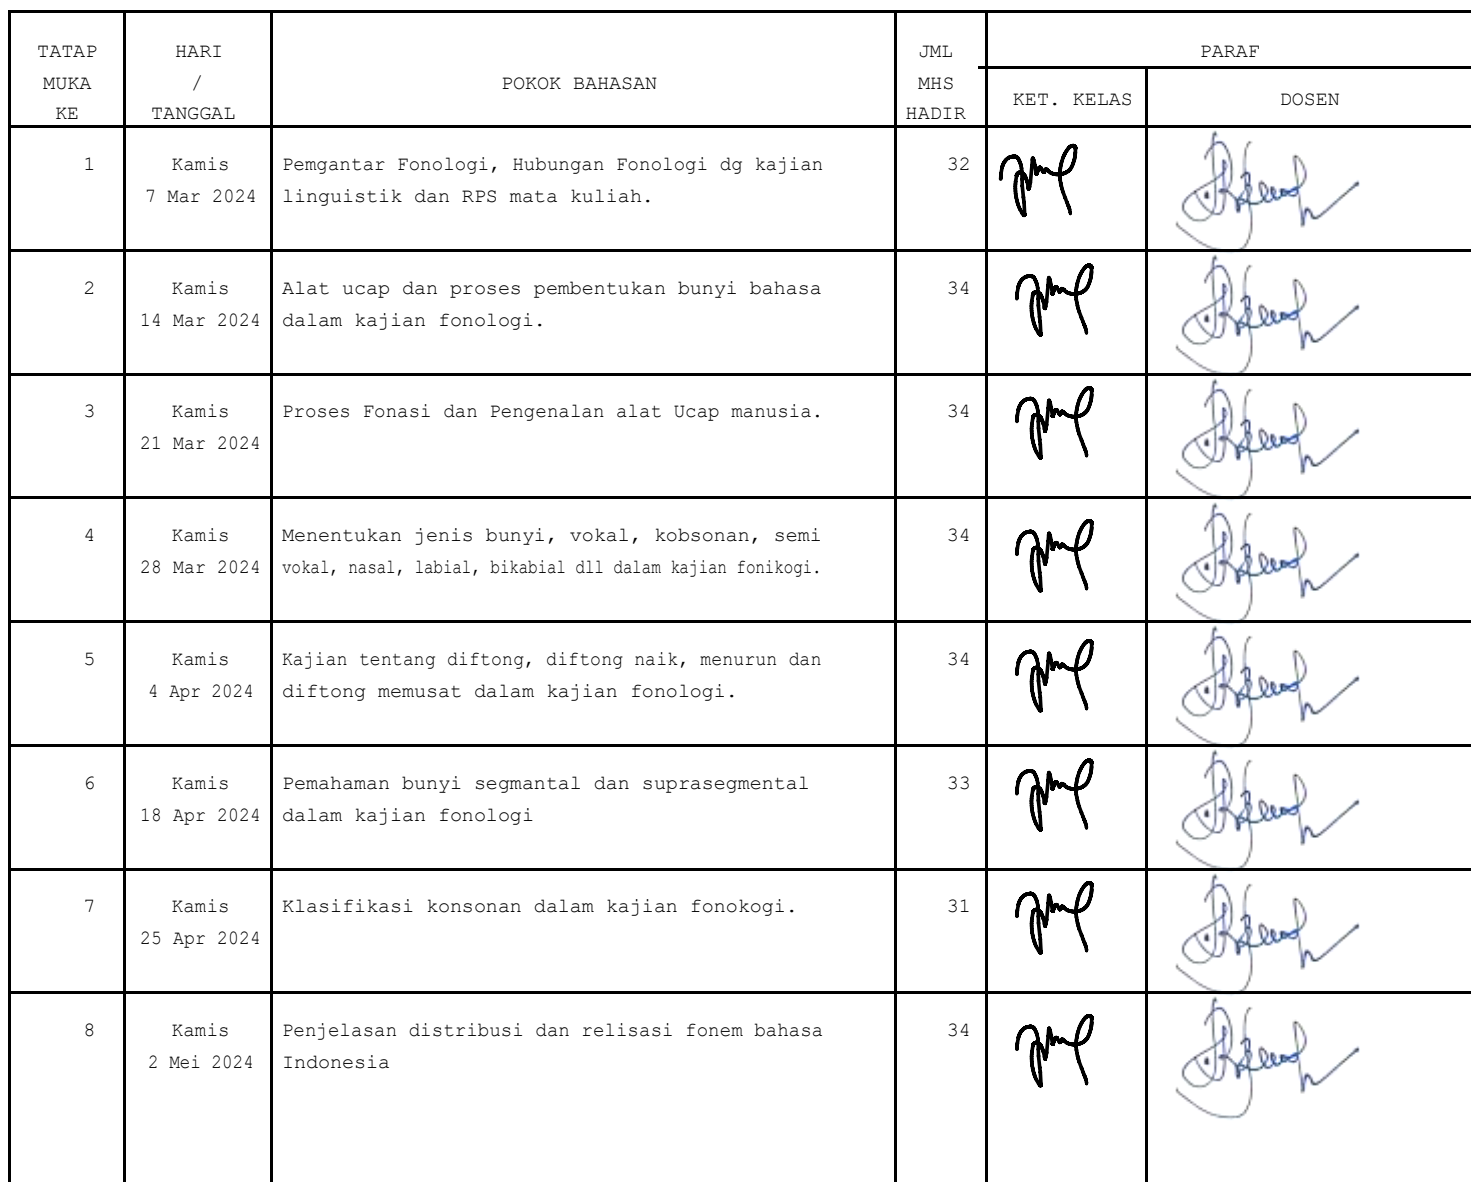 TATAP
MUKA
KE
HARI
/
TANGGAL
POKOK BAHASAN
JML
MHS
HADIR
PARAF
KET. KELAS
DOSEN
1
Kamis
7 Mar 2024
Pemgantar Fonologi, Hubungan Fonologi dg kajian
linguistik dan RPS mata kuliah.
32
2
Kamis
14 Mar 2024
Alat ucap dan proses pembentukan bunyi bahasa
dalam kajian fonologi.
34
3
Kamis
21 Mar 2024
Proses Fonasi dan Pengenalan alat Ucap manusia.
34
4
Kamis
28 Mar 2024
Menentukan jenis bunyi, vokal, kobsonan, semi
vokal, nasal, labial, bikabial dll dalam kajian fonikogi.
34
5
Kamis
4 Apr 2024
Kajian tentang diftong, diftong naik, menurun dan
diftong memusat dalam kajian fonologi.
34
6
Kamis
18 Apr 2024
Pemahaman bunyi segmantal dan suprasegmental
dalam kajian fonologi
33
7
Kamis
25 Apr 2024
Klasifikasi konsonan dalam kajian fonokogi.
31
8
Kamis
2 Mei 2024
Penjelasan distribusi dan relisasi fonem bahasa
Indonesia
34